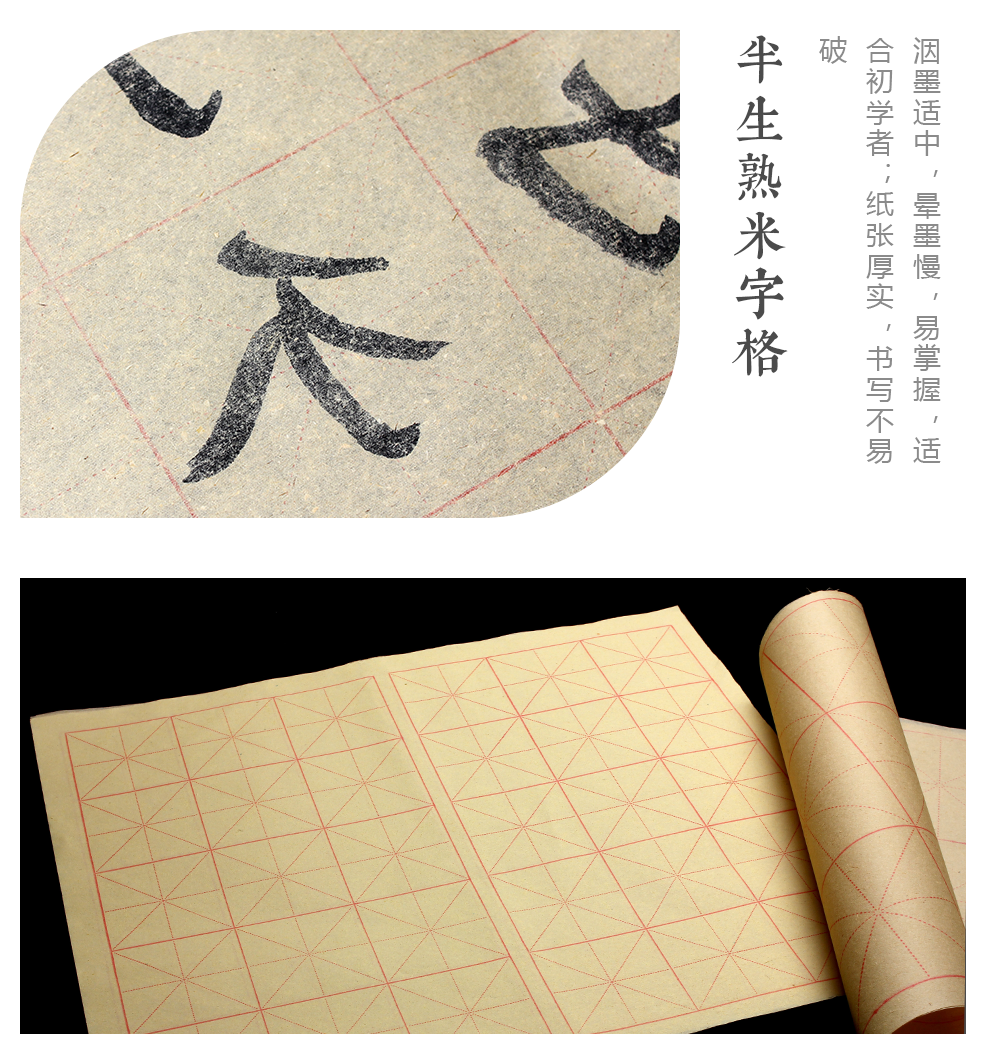 半生熟米字格
洇墨适中，晕墨慢，易掌握，适
合初学者；纸张厚实，书写不易
破